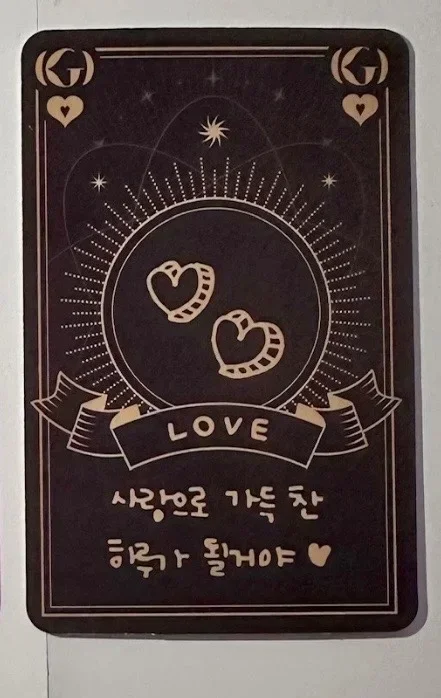 (G) (G)
LOVE
사랑으로 가득 찬
하루가 될거야 ♥